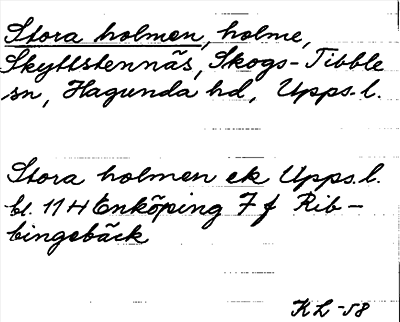 Stora holmen, holme,
Skyttstennäs, Skogs-Tibble
sn, Hagunda hd, Upps.l.
Stora holmen ek Upps.l.
bl. 11 H Enköping 7 f Rib-
bingebäck
KL -58